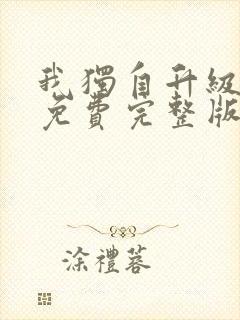 我獨自升級
免費完整版
涂禮蓉